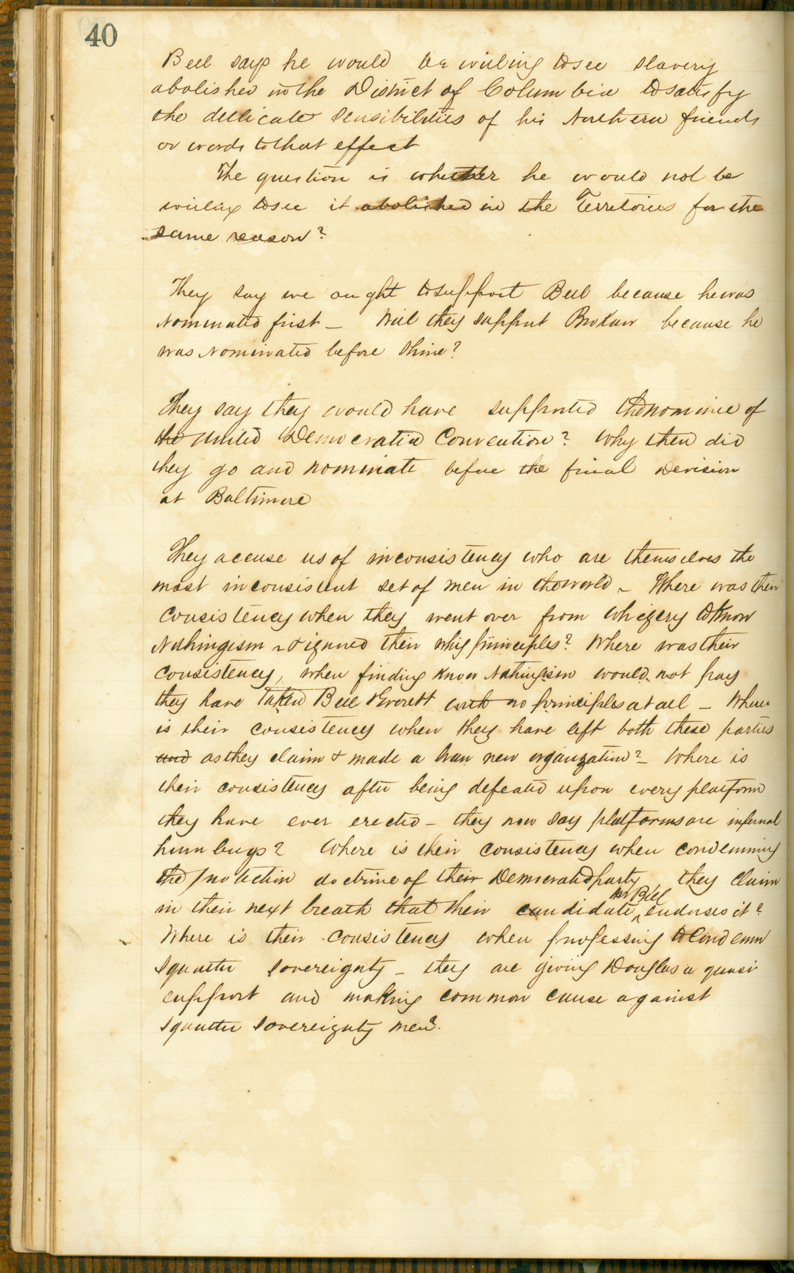 40
Bell says he would be willing to see slavery
abolished in the District of Columbia to satisfy
the delicate sensibilities of his Northern friends
or words to that effect
The question is whether he would not be
willing to see it abolished in the Territories for the
same reason?
They say we ought to support Bell because he was
Nominated first - Will they support because he
was Nominated before mine?
They say they would have supported the nominee of
the United Democratic Convention? Why then did
they go and nominate before the final decision
at Baltimore
They accuse us of inconsistency who are themselves the
most inconsistent set of men in the world - Where was their
Consistency when they went over from whigery to Know
Nothingism & their whig principles? Where was their
Consistency, when finding Know Nothingism would not pay
they have taken Bell & Everett with no principles at all - Where
is their consistency when they have left both these parties
and as they claim & made a bran new organization? - Where is
their consistency after being defeated upon every platform
they have ever erected - they now say platforms are infernal
humbugs? Where is their consistency when condemning
the protection doctrine of their Democratic party they claim
in their next breath that their candidate, Mr Bell endorses it?
Where is their consistency when professing to condemn
squatter sovereignty - they are giving Douglas a quasi
support and making common cause against
squatter sovereignty men?